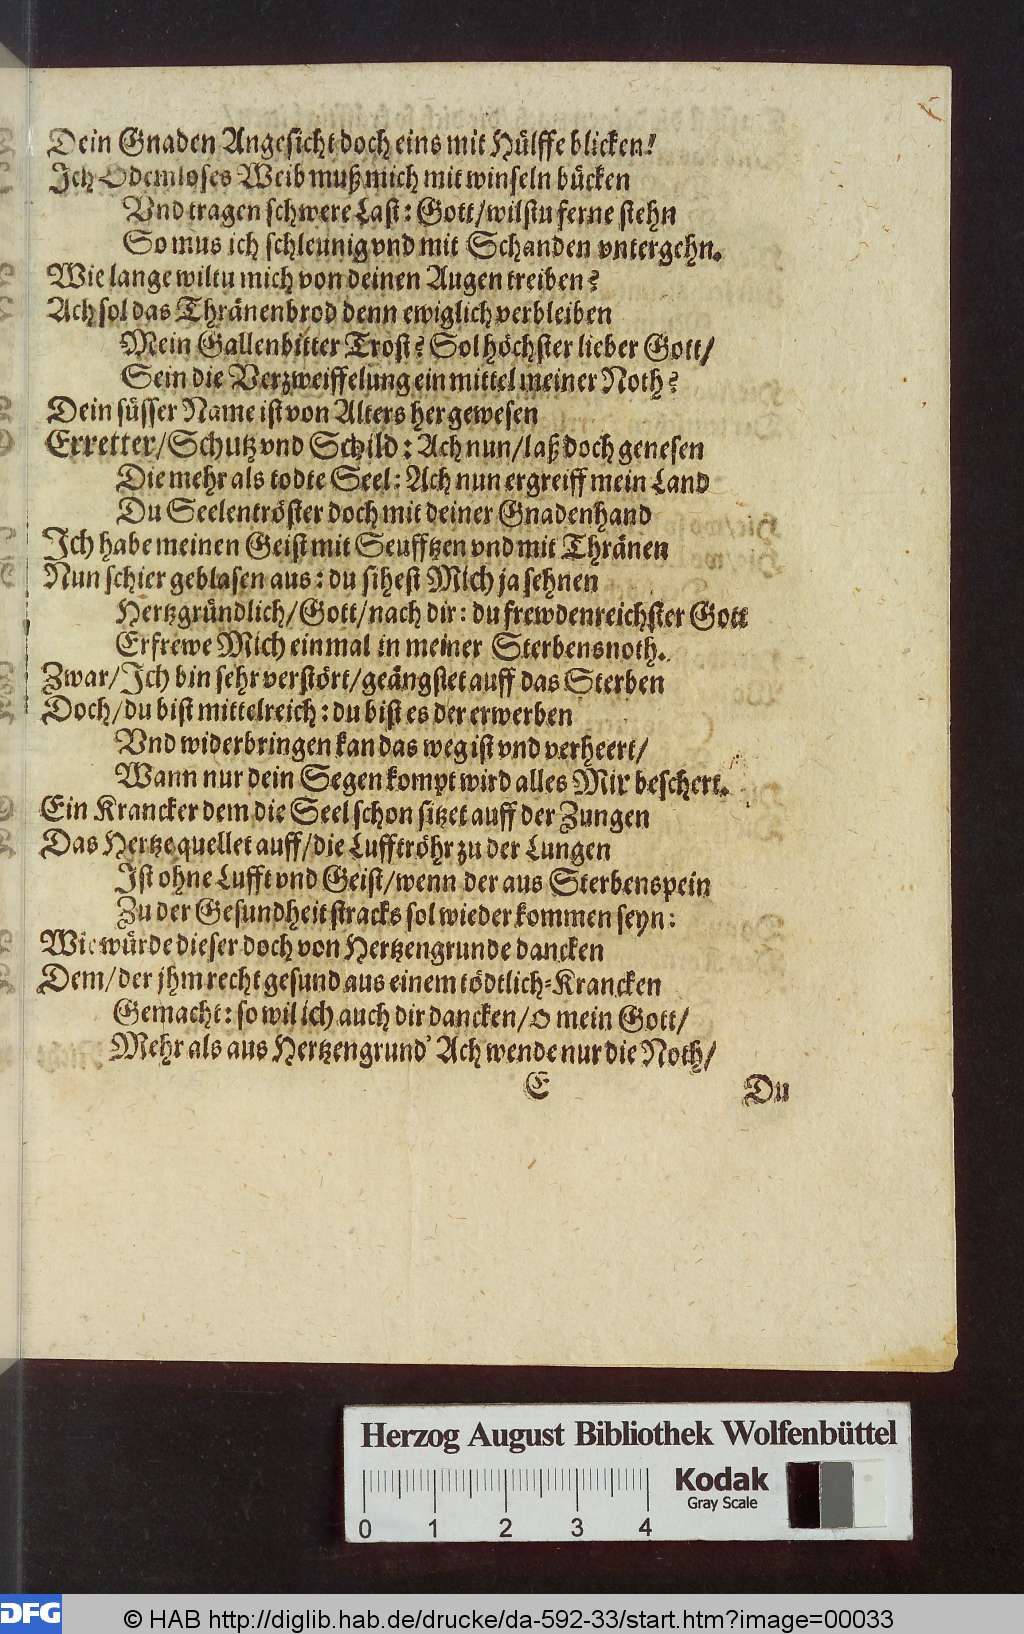 Dein Gnaden Angesicht doch eins mit Hülffe blicken!
Ich Odemloses Weib muß mich mit winseln bücken
Vnd tragen schwere Last: Gott/wilstu ferne stehn
So mus ich schleunig vnd mit Schanden vntergehn.
Wie lange wiltu mich von deinen Augen treiben?
Ach sol das Thränenbrod denn ewiglich verbleiben
Mein Gallenbitter Trost? Sol höchster lieber Gott/
Sein die Verzweiffelung ein mittel meiner Noth?
Dein süsser Name ist von Alters her gewesen
Erretter/Schutz vnd Schild: Ach nun/laß doch genesen
Die mehr als todte Seel: Ach nun ergreiff mein Land
Du Seelentröster doch mit deiner Gnadenhand
Ich habe meinen Geist mit Seufftzen vnd mit Thränen
Nun schier geblasen aus: du sihest Mich ja sehnen
Hertzgründlich/Gott/nach dir: du frewdenreichster Gott
Erfrewe Mich einmal in meiner Sterbensnoth.
Zwar/Ich bin sehr verstört/geängstet auff das Sterben
Doch/du bist mittelreich: du bist es der erwerben
Vnd widerbringen kan das weg ist vnd verheert/
Wann nur dein Segen kompt wird alles Mir beschert.
Ein Krancker dem die Seel schon sitzet auff der Zungen
Das Hertze quellet auff/die Lufftröhr zu der Lungen
Ist ohne Lufft vnd Geist/wenn der aus Sterbenspein
Zu der Gesundheit stracks sol wieder kommen seyn:
Wie würde dieser doch von Hertzengrunde dancken
Dem/der jhm recht gesund aus einem tödtlich-Krancken
Gemacht: so wil ich auch dir dancken/O mein Gott/
Mehr als aus Hertzengrund' Ach wende nur die Noth/
E Du
Herzog August Bibliothek Wolfenbüttel
Kodak
Gray Scale
0 1 2 3 4
DFG © HAB http://diglib.hab.de/drucke/da-592-33/start.htm?image=00033